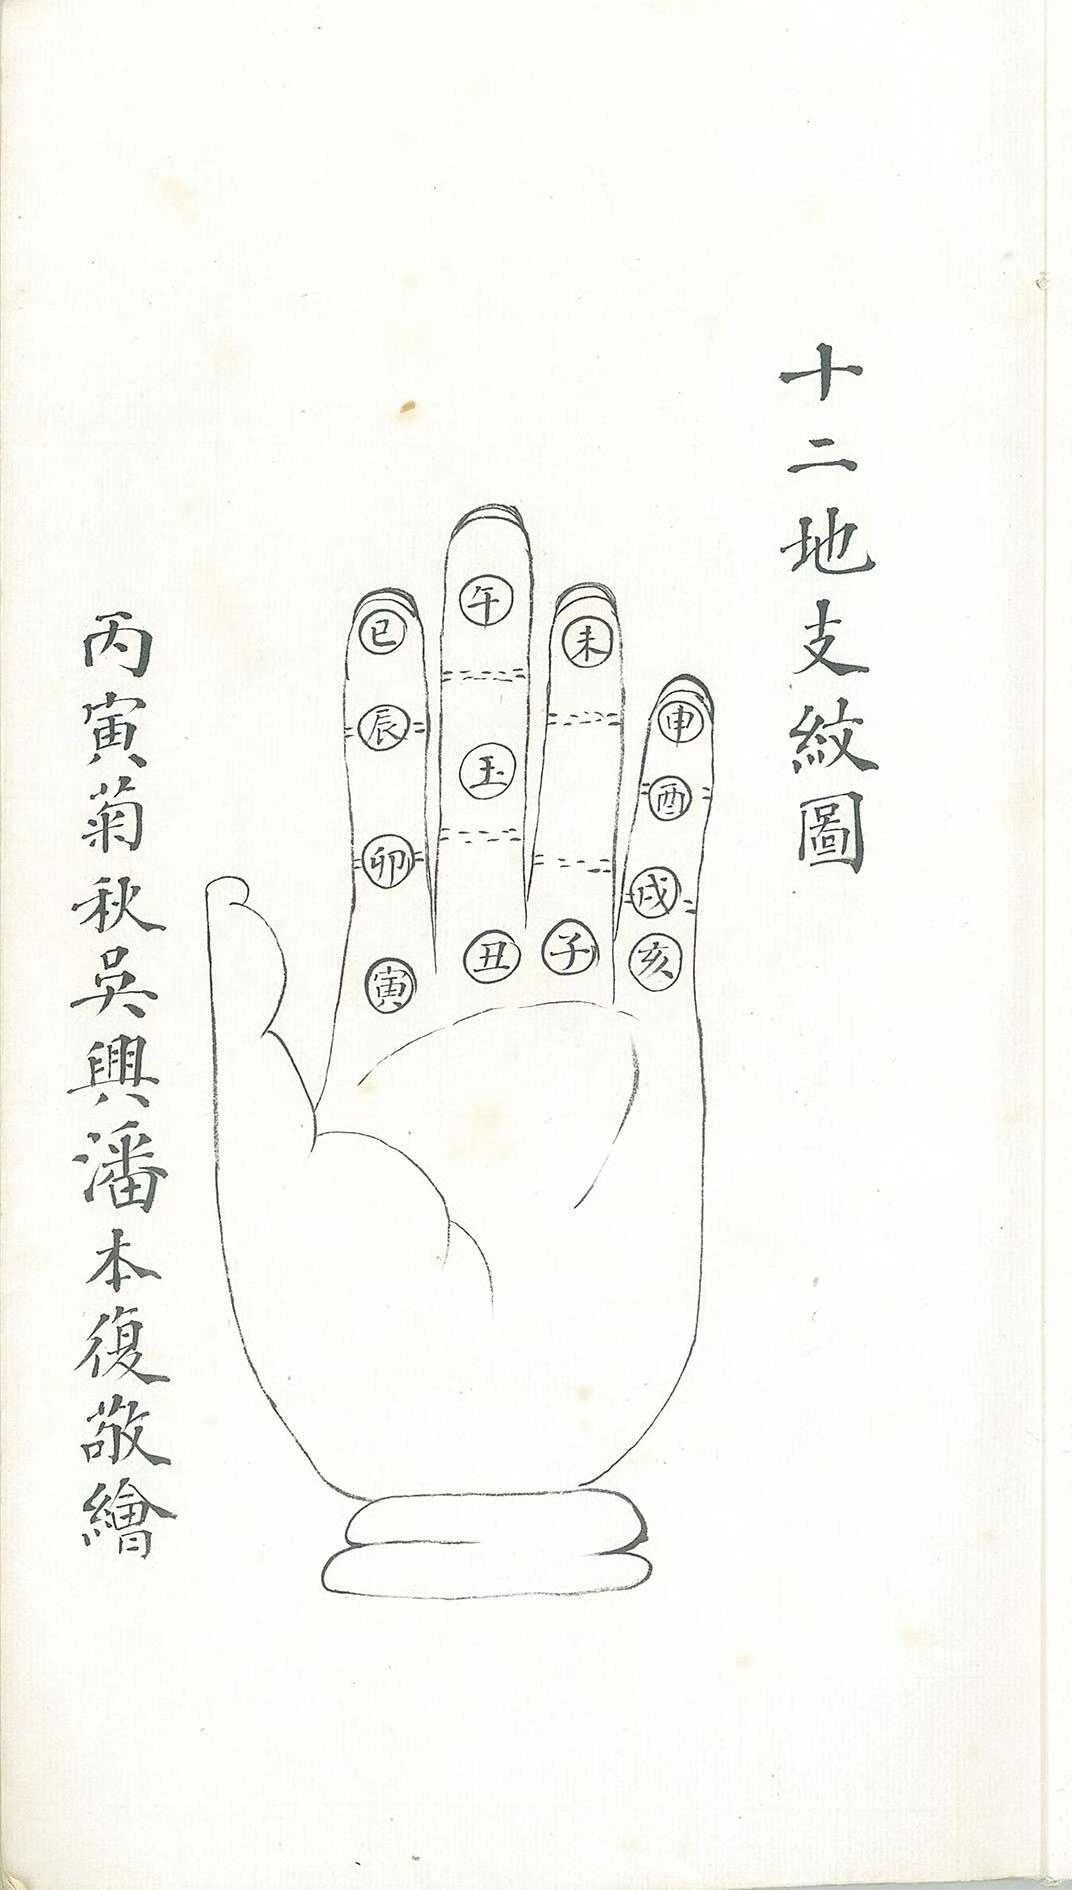 十二地支紋圖
午
巳
未
申
辰
玉
酉
卯
戌
丑
子
亥
寅
丙寅菊秋吳興潘本復敬繪